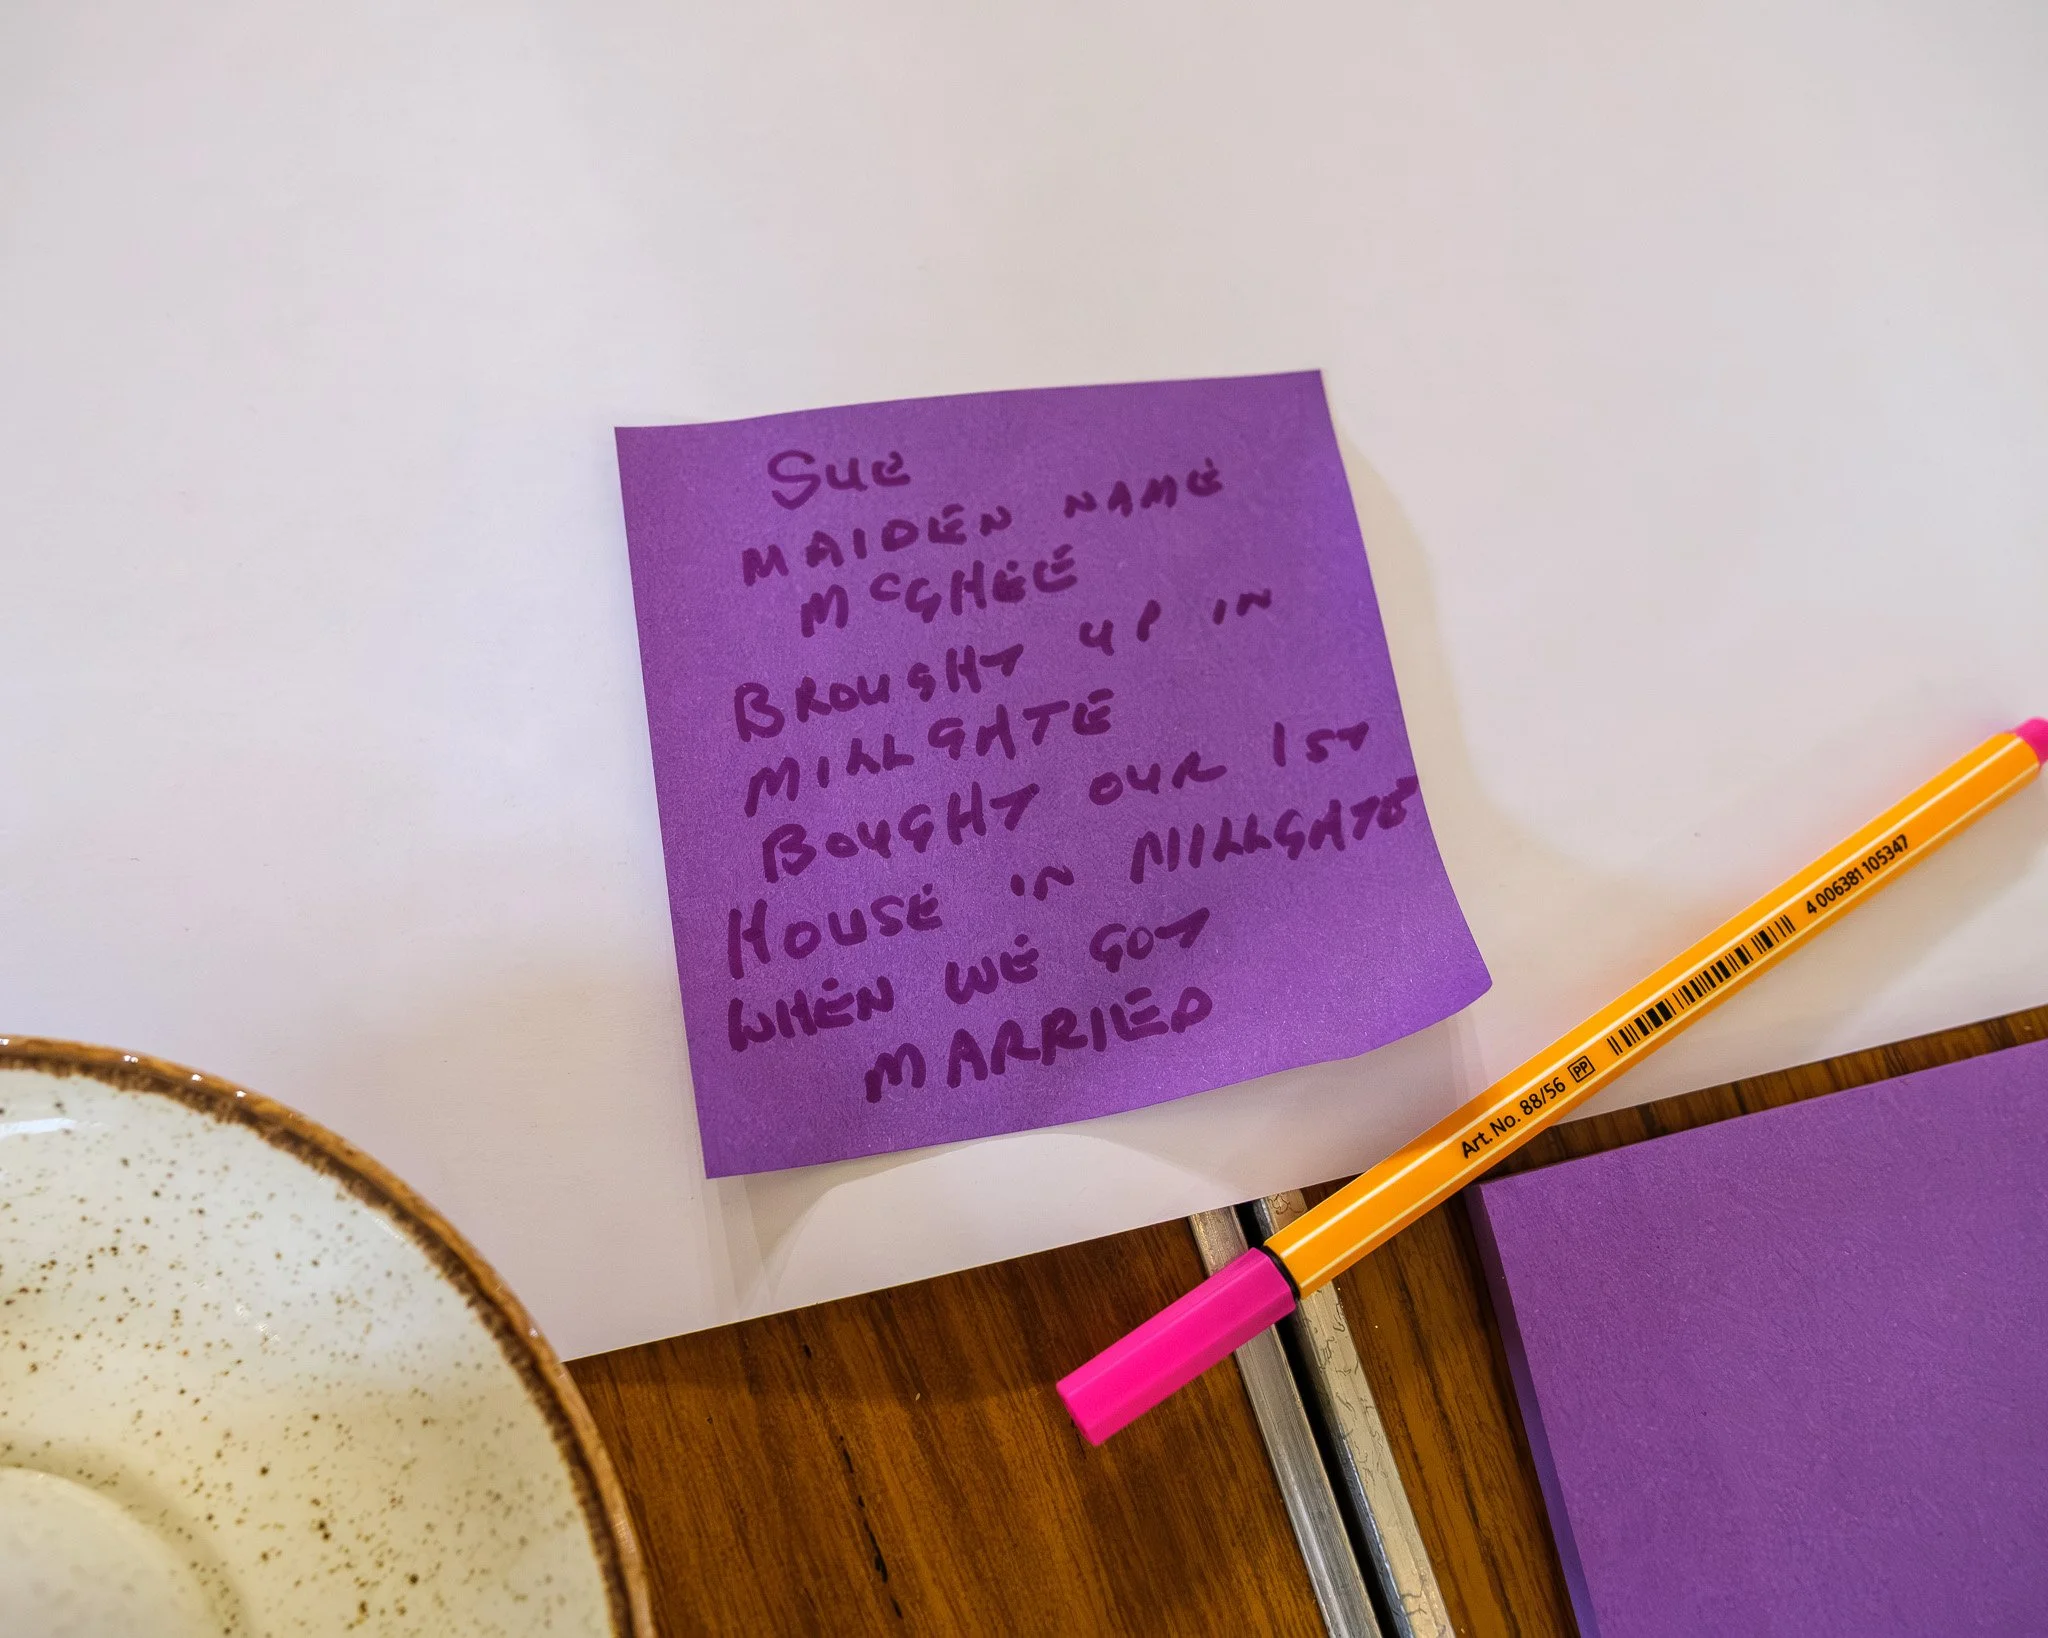 Sue
MAIDEN NAME
McGHEE
BROUGHT UP IN
MILLGATE
BOUGHT OUR 1ST
HOUSE IN MILLGATE
WHEN WE GOT
MARRIED
Art. No. 88/56 PP 4 006381 105347